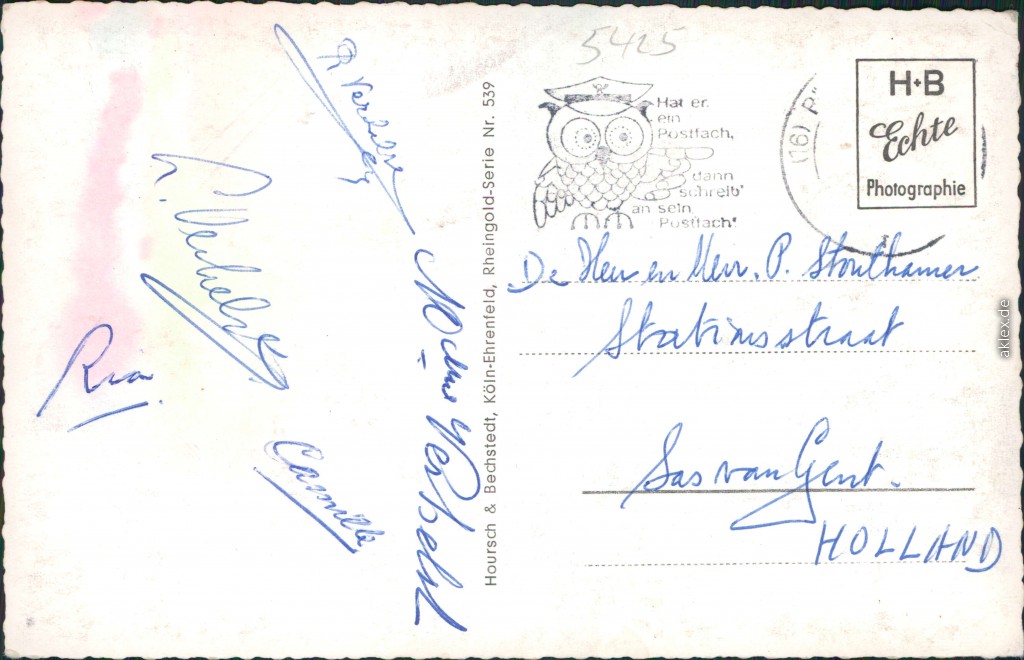 5425
Hat er
ein
Postfach,
dann
schreib'
an sein
Postfach!
(16)
H+B
Echte
Photographie
De Heer en Mevr. P. Stouthamer
Stationsstraat
Sas van Gent.
HOLLAND
Hoursch & Bechstedt, Köln-Ehrenfeld, Rheingold-Serie Nr. 539
Ria
Camille
aklex.de